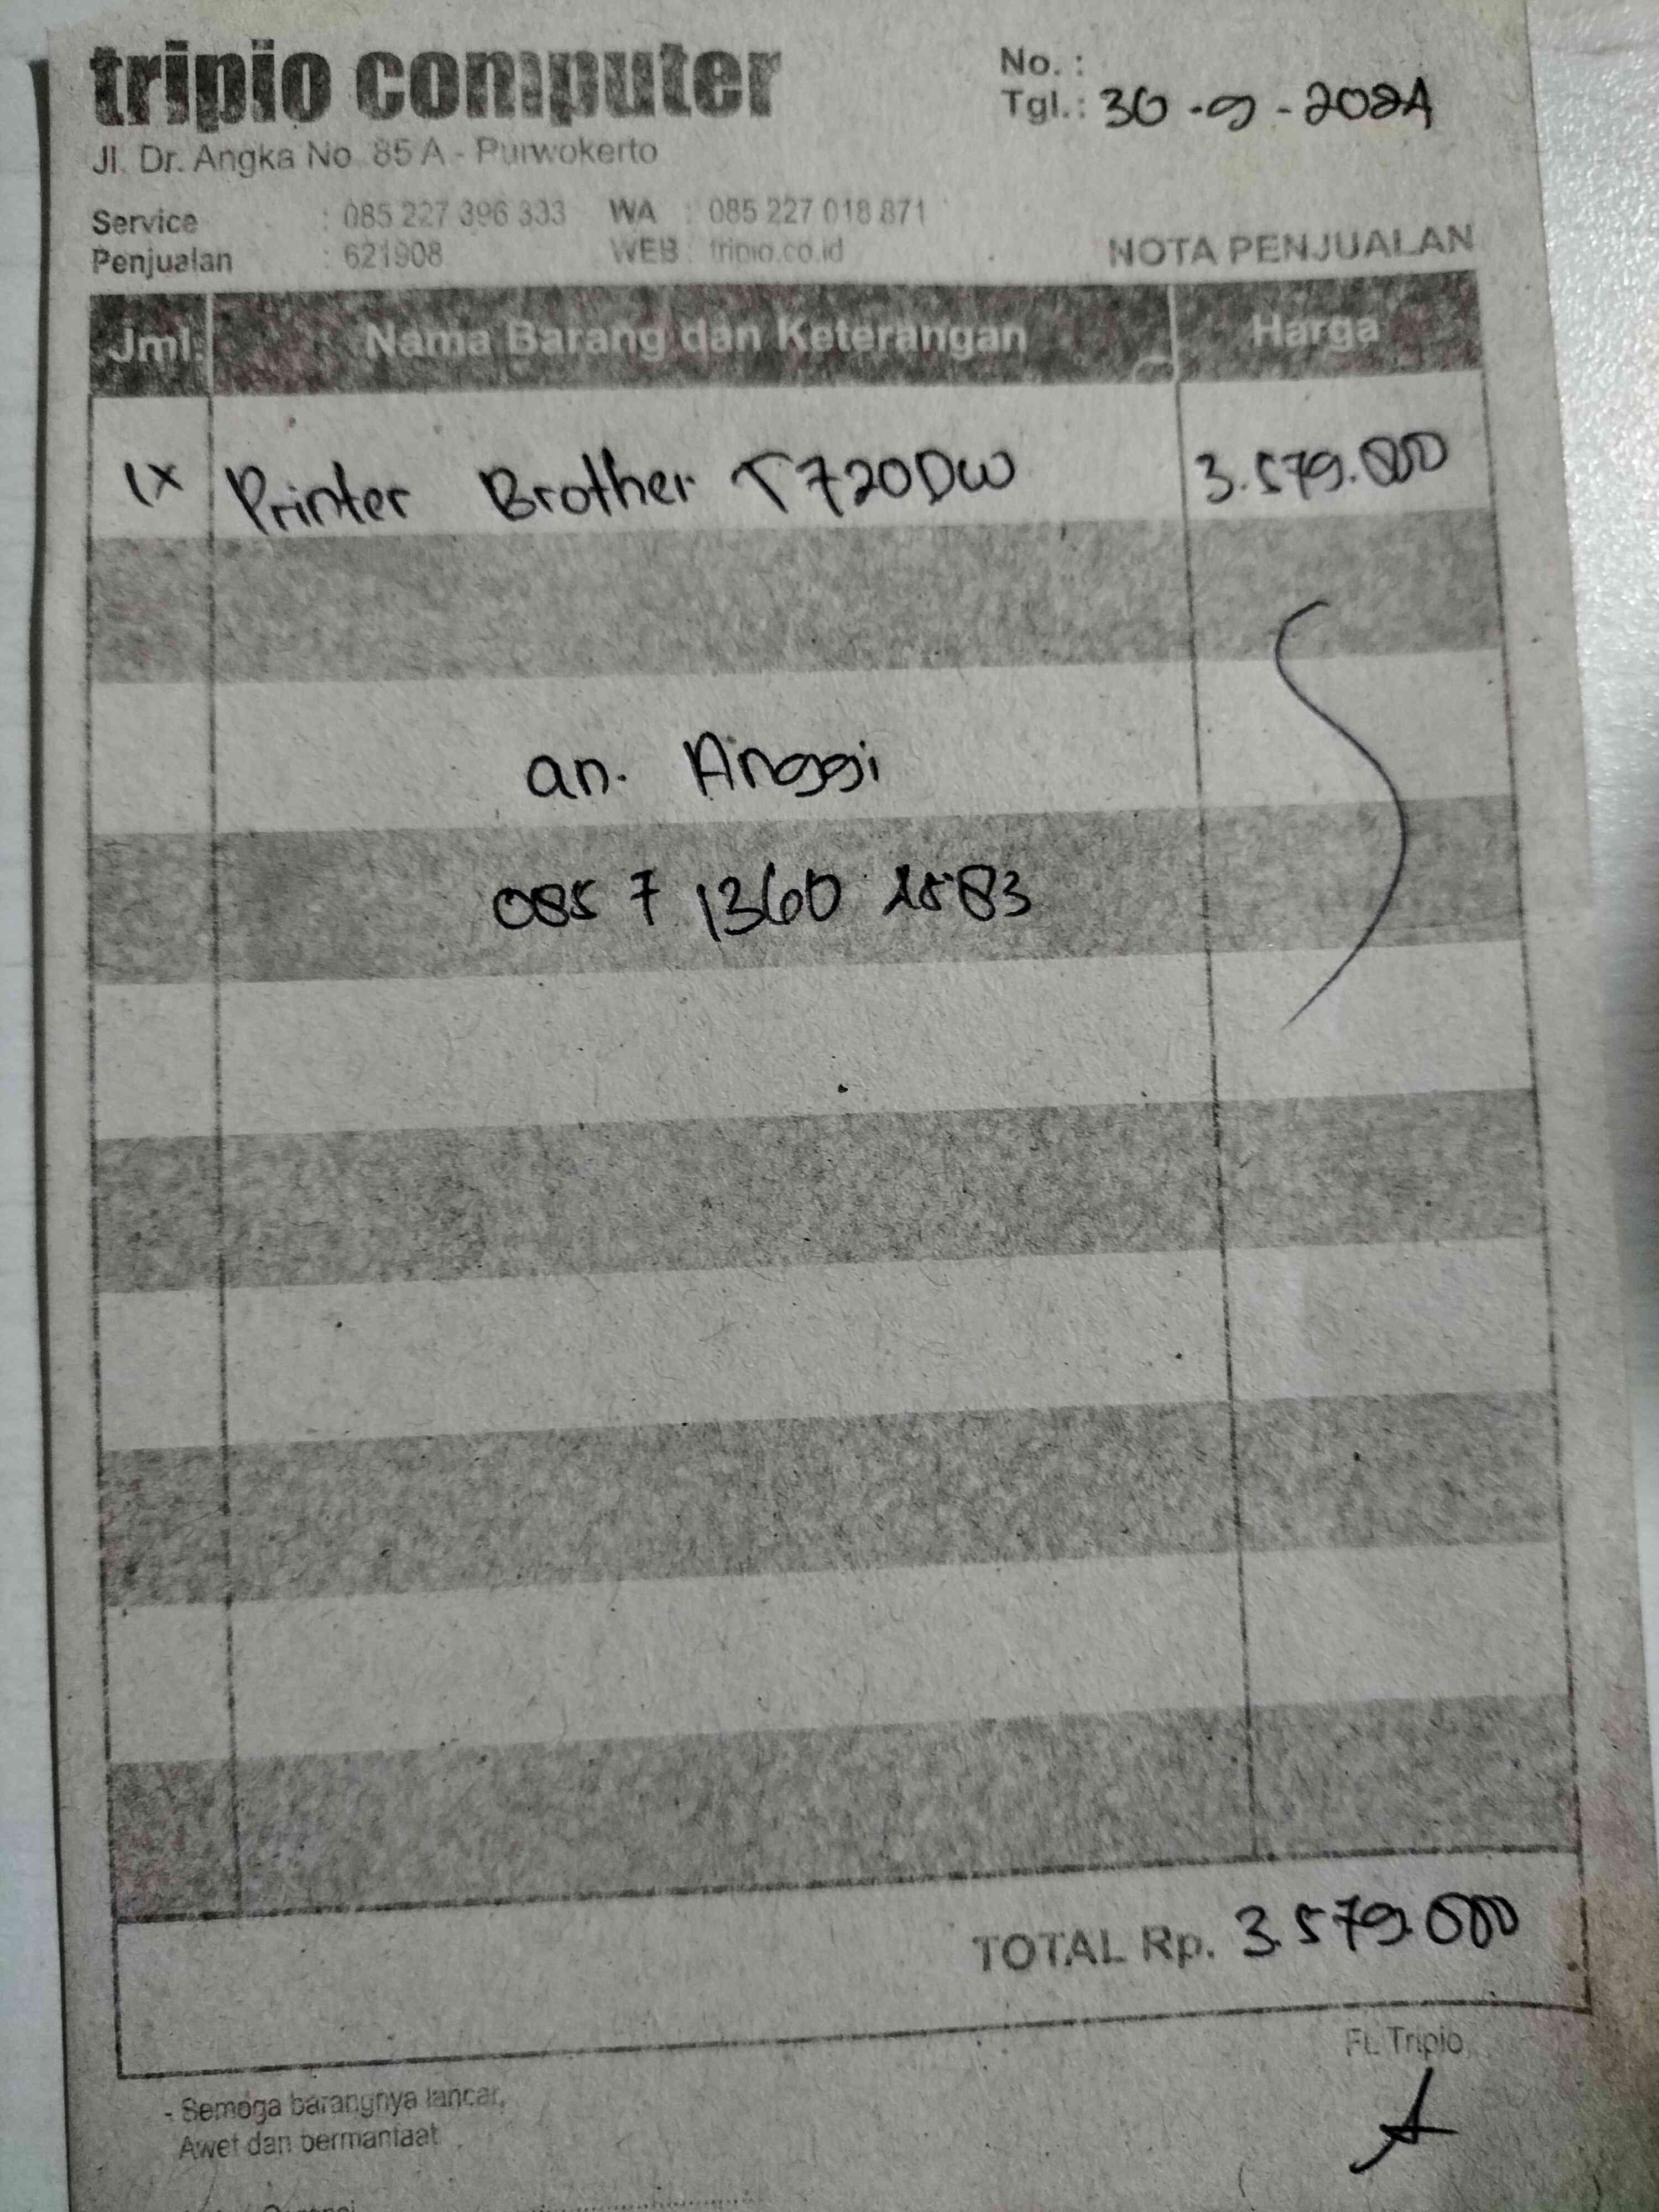 tripio computer
No. :
Tgl.: 30-9-2024
Jl. Dr. Angka No. 85 A - Purwokerto
Service : 085 227 396 333 WA : 085 227 018 871
Penjualan : 621908 WEB : tripio.co.id
NOTA PENJUALAN
Jml. Nama Barang dan Keterangan Harga
1x Printer Brother T720DW 3.579.000
an. Anggi
085 7 1360 2583
TOTAL Rp. 3.579.000
Ft. Tripio
- Semoga barangnya lancar,
Awet dan bermanfaat